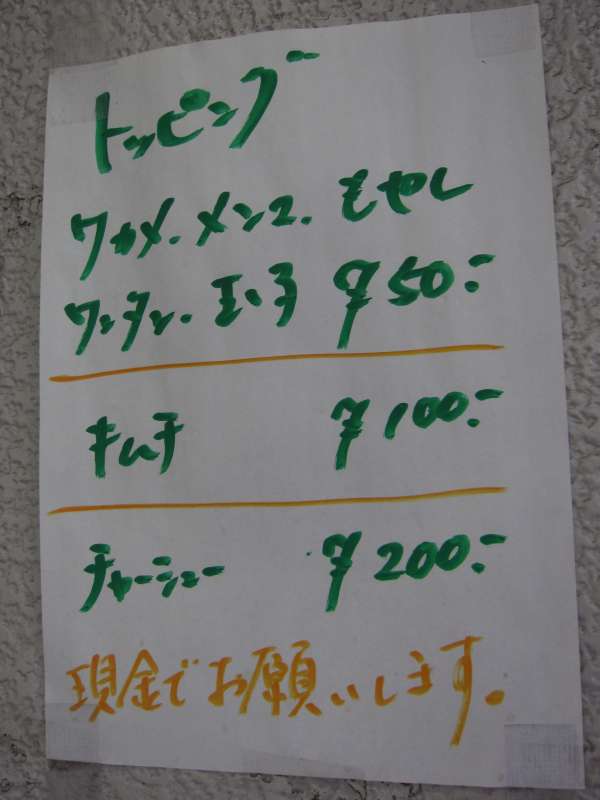 トッピング
ワカメ. メンマ. もやし
ワンタン. 玉子 ¥50:-
キムチ ¥100:-
チャーシュー ¥200:-
現金でお願いします。